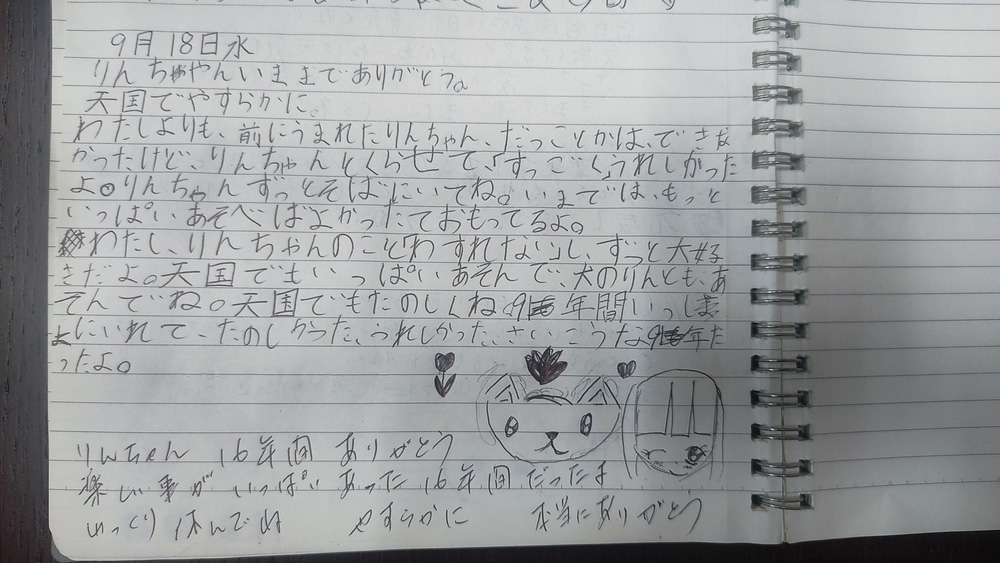 9月18日水
りんちゃやんいままでありがとう。
天国でやすらかに。
わたしよりも、前にうまれたりんちゃん、だっことかは、できな
かったけど、りんちゃんとくらせて、すっごくうれしかった
よ。りんちゃんずっとそばにいてね。いまでは、もっと
いっぱいあそべばよかったておもってるよ。
わたし、りんちゃんのことわすれないし、ずっと大好
きだよ。天国でもいっぱいあそんで、犬のりんとも、あ
そんでね。天国でもたのしくね。9年間いっし
ょにいれて、たのしかった、うれしかった、さいこうな9年だ
ったよ。
りんちゃん 16年間 ありがとう
楽しい事が いっぱい あった 16年間 だったね
ゆっくり 休んでね やすらかに 本当にありがとう